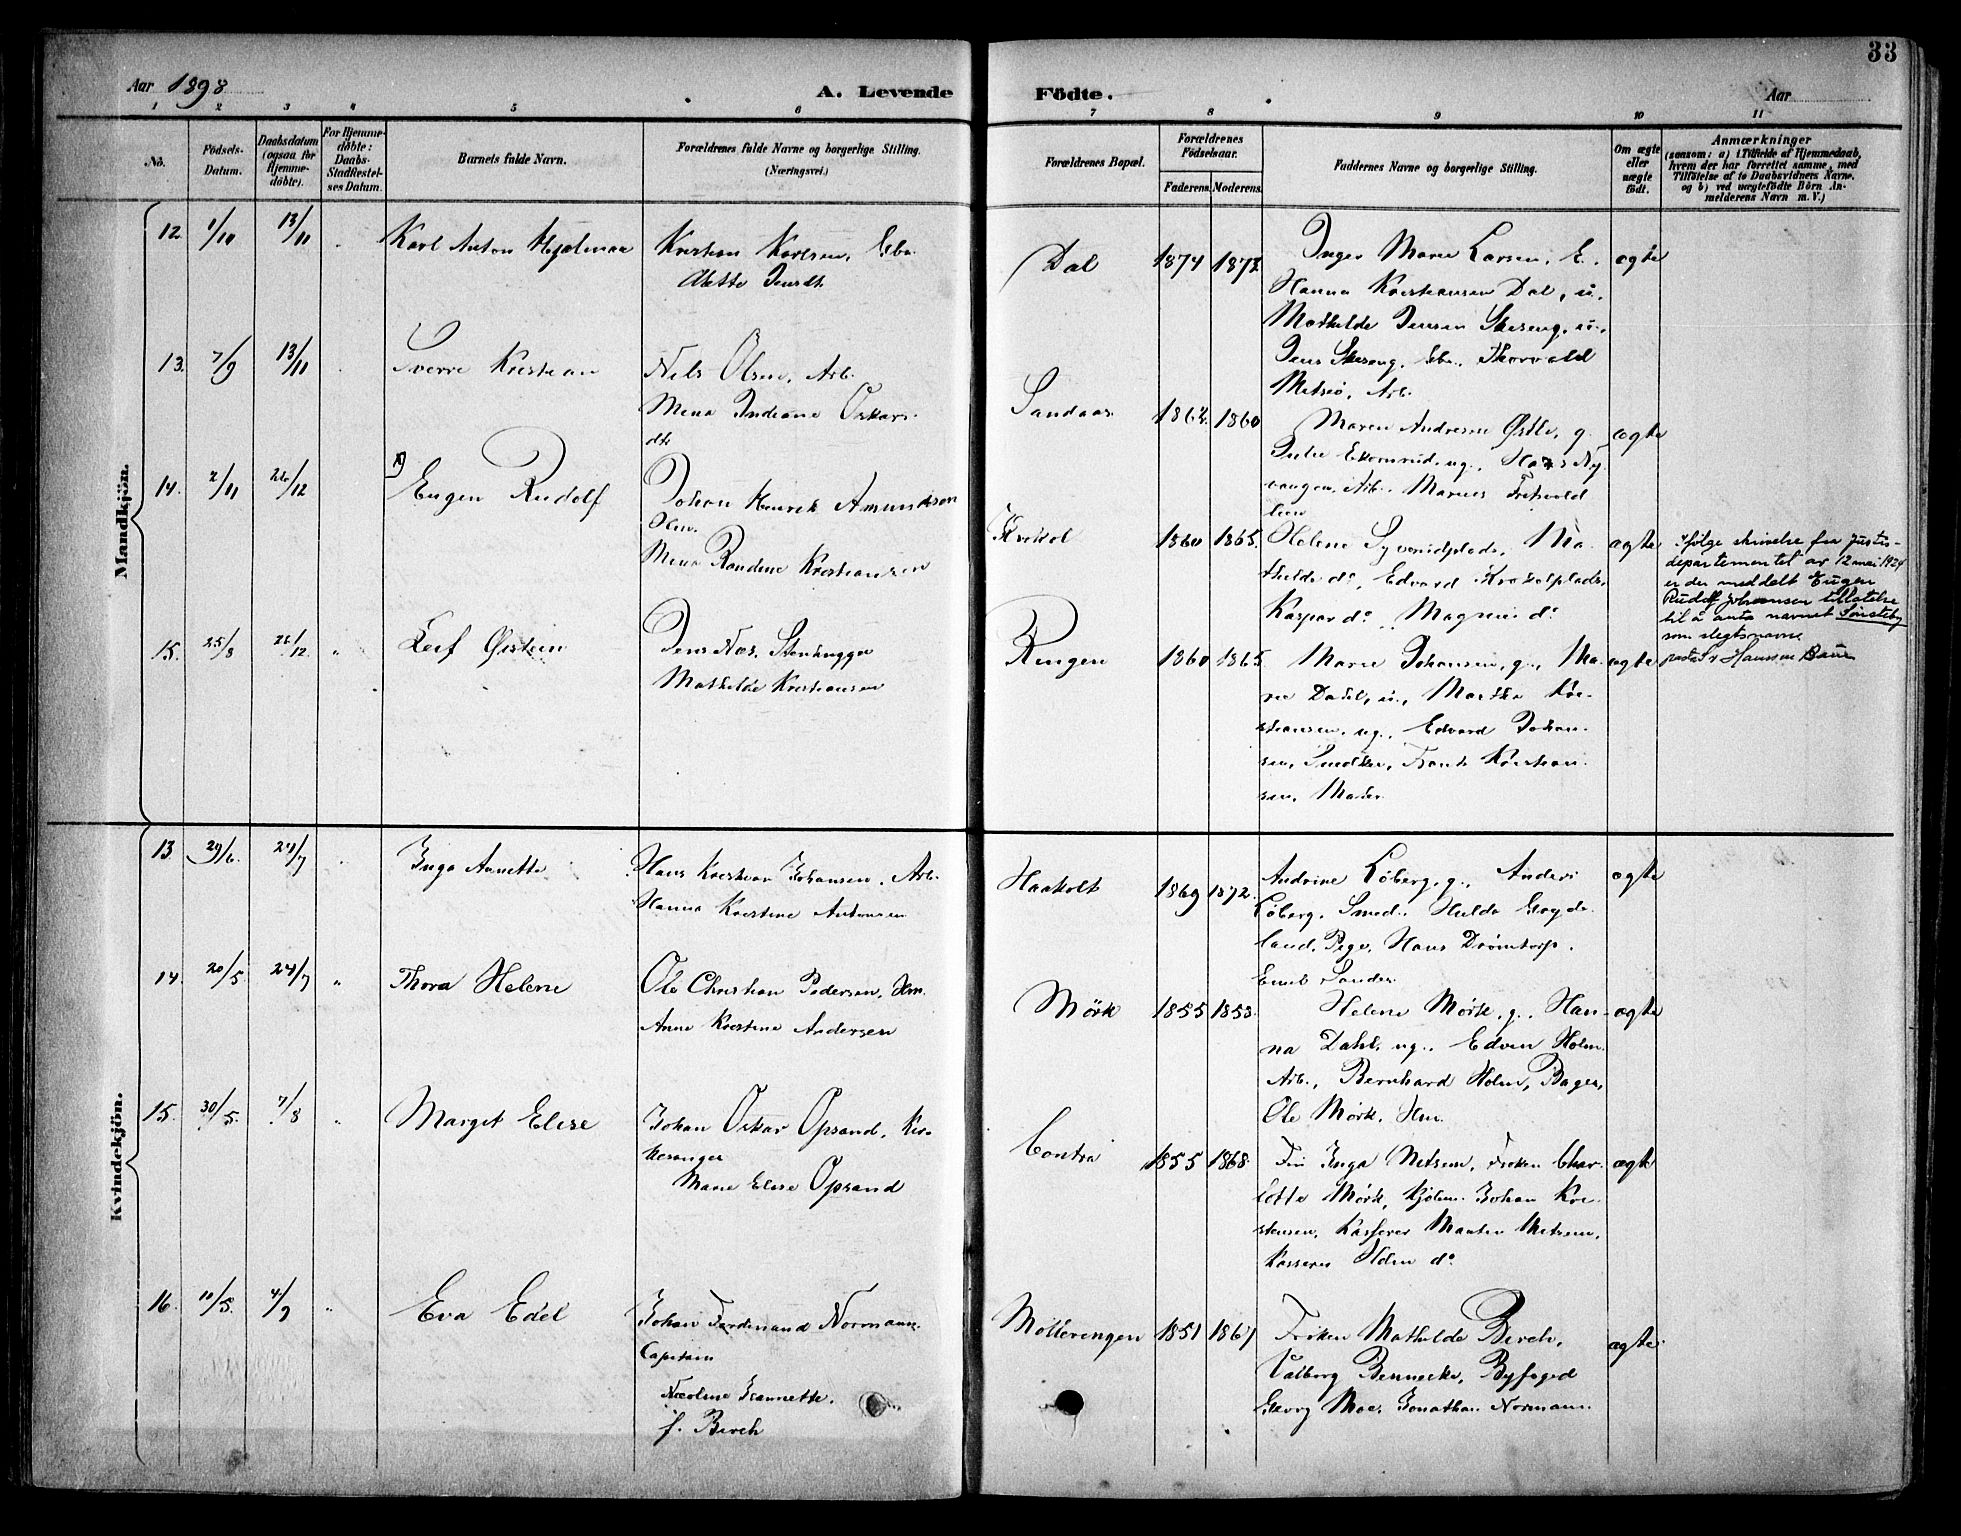 33
Aar 1898
A. Levende
Födte.
Aar
1 2 3 4 5 6 7 8 9 10 11
No.
Födsels-
Datum.
Daabsdatum
(ogsaa for
Hjemme-
döbte).
For Hjemme-
döbte:
Daabs-
Stadfæstel-
ses Datum.
Barnets fulde Navn.
Forældrenes fulde Navne og borgerlige Stilling.
(Næringsvei.)
Forældrenes Bopæl.
Forældrenes
Födselsaar.
Faderens. Moderens.
Faddernes Navne og borgerlige Stilling.
Om ægte
eller
uægte
födt.
Anmærkninger
(saasom: a) i Tilfælde af Hjemmedaab,
hvem der har forrettet samme, med
Tilföielse af to Daabsvidners Navne.
og b) ved uægtefödte Börn An-
melderens Navn m. V.)
Mandkjön.
12. 1/10 13/11 Karl Anton Hjalmar
Kristian Karlsen, Gbr.
Alette Jensdt.
Dal 1874 1872
Inger Marie Larsen, E.
Hanna Kristiansen Dal, u.
Mathilde Jensen Skeseng, u.,
Jens Skeseng, Gbr., Thorvald
Metsiø, Arb.
ægte
13. 7/9 13/11 Sverre Kristian
Nils Olsen, Arb.
Mina Indiane Oskars-
dt.
Sandaas 1862. 1860
Maren Andresen Østli, g.
Julie Ekornrud, ug., Hans Ny-
vangen, Arb., Marius Fritvold
ægte
14. 2/11 26/12 Eugen Rudolf
Johan Henrik Amundsen
Mina Randine Kristiansen
Krokol 1860 1865.
Helene Syverudplads, Ma-
thilde do, Edvard Krokolplads,
Kaspar do, Magnus do
ægte
Ifølge skrivelse fra Justis-
departementet av 12 mai 1924
er der meddelt Eugen
Rudolf Johansen tillatelse
til å anta navnet Sønsteby
som slegtsnavn.
15. 25/8 26/12 " Leif Øistein
Jens Næs, Stenhugger
Mathilde Kristiansen
Ringen 1860 1865
Marie Johansen, g., Ma-
rie Dahl, u., Martha Kri-
stiansen, ug., Edvard Johan-
sen, Snedker, Frants Kristian-
sen, Maler
ægte
Kvindekjön.
13. 29/6. 24/7 Inga Annette
Hans Kristian Johansen, Arb.
Hanna Kristine Antonsen
Haakolt 1869 1872.
Andrine Løberg, g., Anders
Løberg, Smed., Hulda Grøyde-
land, Pige, Hans Drømtorp.
Emil Sander
ægte
14. 20/5. 24/7 " Thora Helene
Ole Christian Pedersen, Hm.
Anne Kristine Andersen
Mørk 1855 1853.
Helene Mørk, g., Han-
na Dahl, ug., Edvin Holm.
Arb., Bernhard Holm, Bager,
Ole Mørk, Hm.
ægte
15. 30/5. 7/8 " Margit Elise
Johan Oskar Opsand, Kir-
kesanger
Marie Elise Opsand
Contra 1855 1868
Fru Inga Nilsen, Frøken Char-
lotte Mørk, Kjøbm. Johan Kri-
stensen, Kasserer Martin Nilsen,
Kasserer Holm do.
ægte
16. 10/5. 4/9 " Eva Edel
Johan Ferdinand Normann.
Capitain
Nicoline Jeannette.
f. Birch
Mølterengen 1851 1867
Frøken Mathilde Birch,
Valborg Bennecke, Byfoged
Georg Moe, Jonathan Normann.
ægte